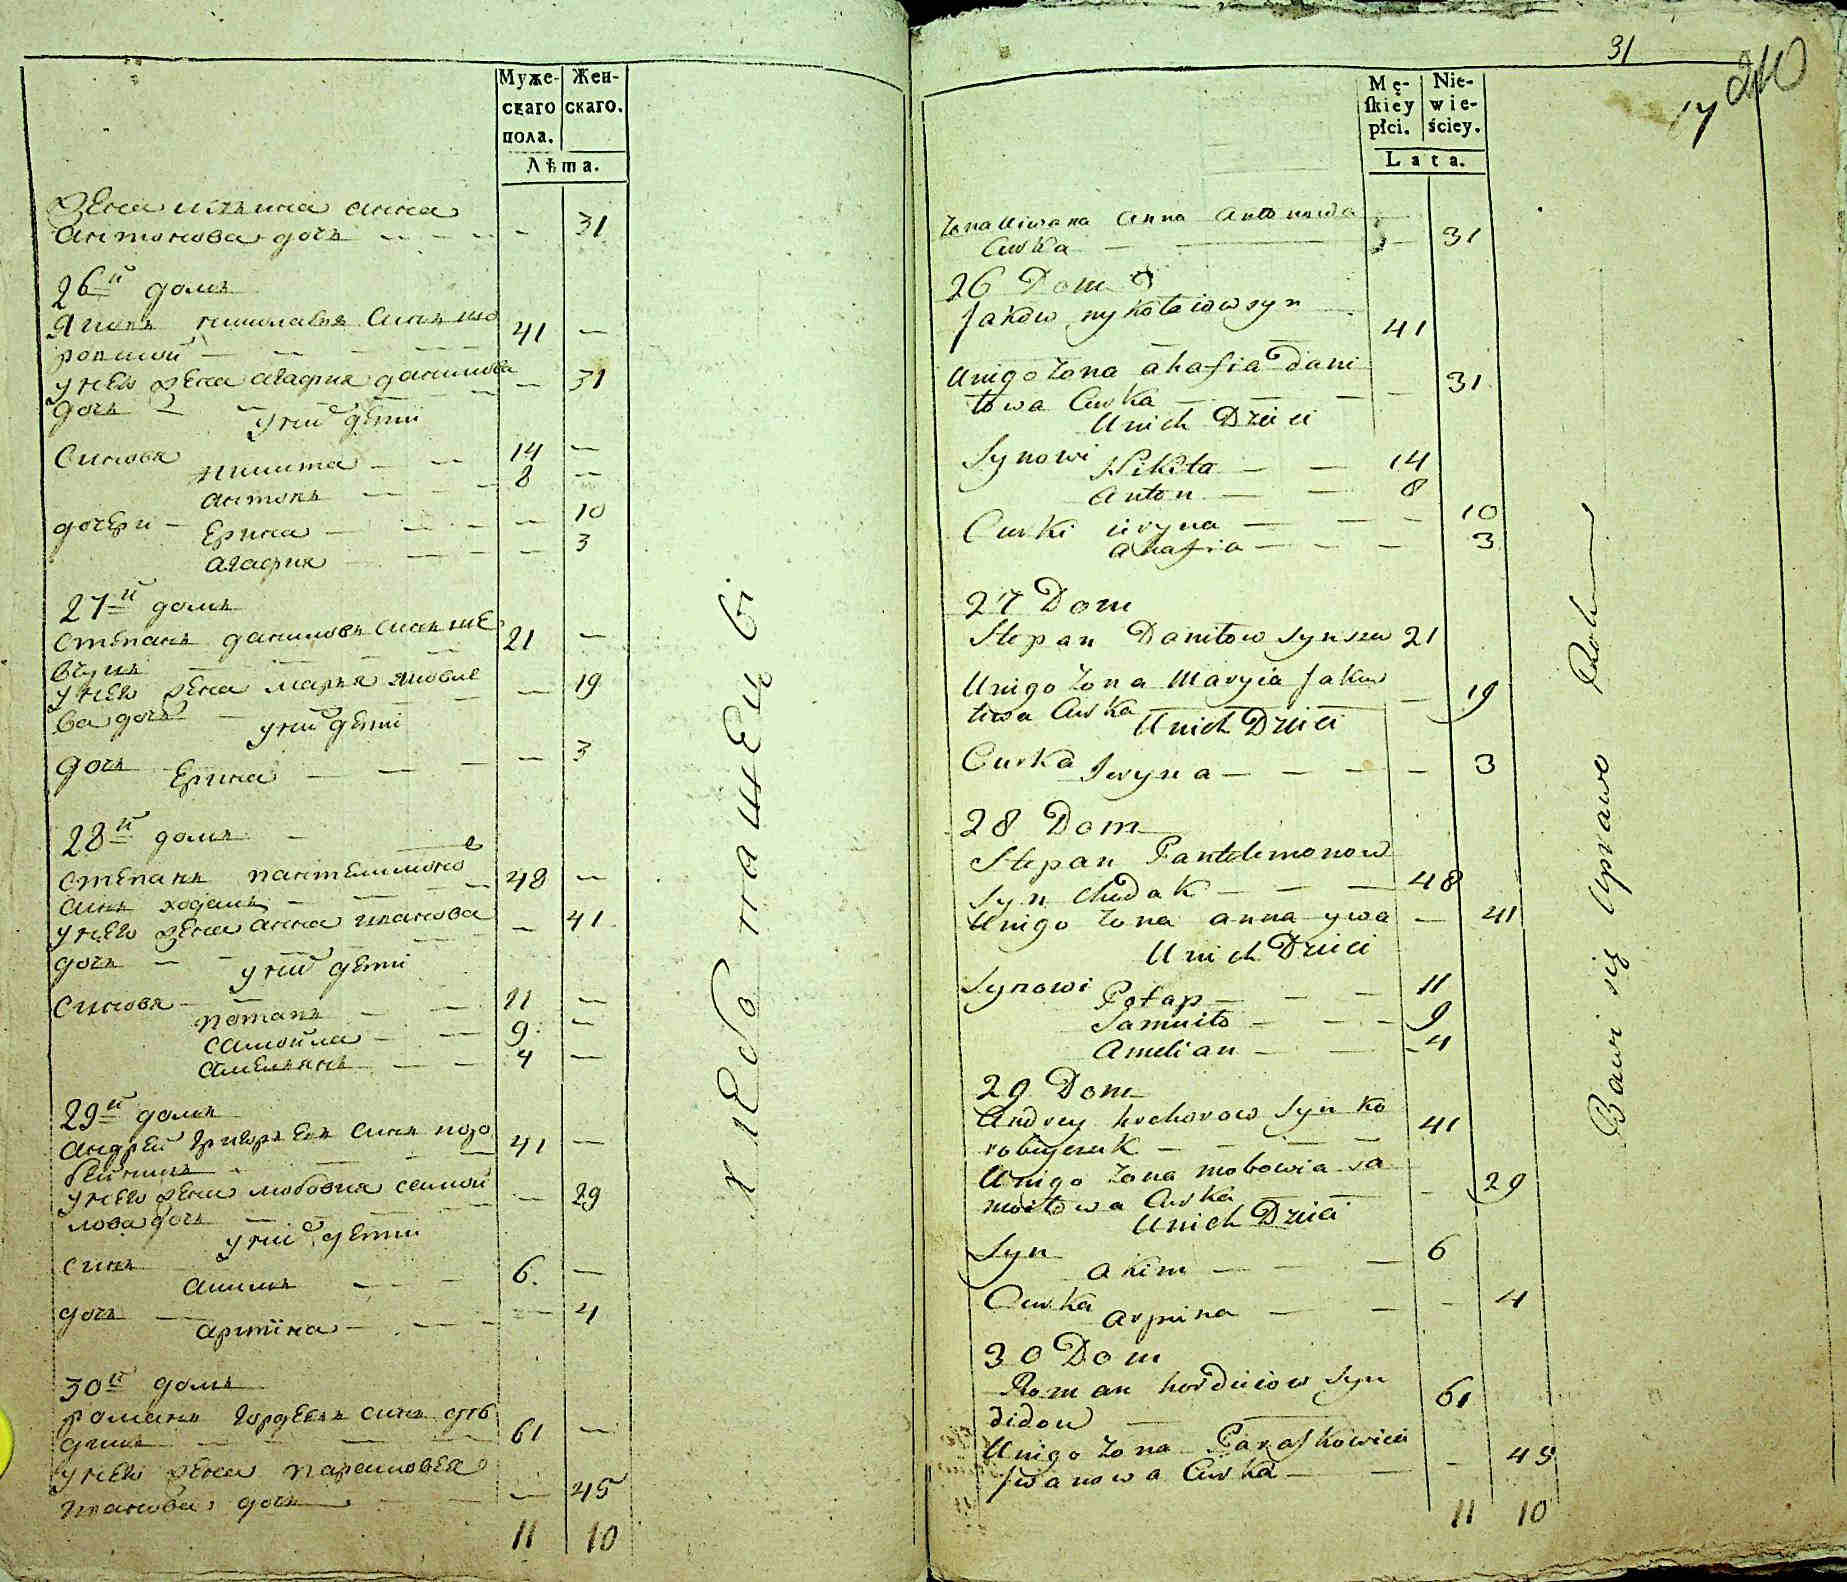 Муже-
скаго
пола.
Жен-
скаго.
Лѣта.
жена ильина анна
антонова дочь 31
26й домъ
Яковъ николаевъ синъ
41
у нево жена агафия данилова 31
дочь
у ний дѣти
Синовя
никита 14
антонъ 8
дочери
Ерина 10
агафия 3
27й домъ
Степанъ даниловъ синъ шев
чукъ 21
у нево жена мария яковле
ва дочь 19
у ний дѣти
дочь
Ерина 3
28й домъ
Степанъ пантелимонов
синъ 48
у нево жена анна иванова
дочь 41
у ний дѣти
Синовя
потапъ 11
самойла 9
амельянъ 4
29й домъ
андрей григорьевъ синъ коро
бейникъ 41
у нево жена любовия самой
лова дочь 29
у ний дѣти
синъ
акимъ 6
дочь
4
30й домъ
романъ гордѣевъ синъ
61
у нево жена парасковея
иванова дочь 45
11 10
хлебопашець
31
17
210
Mę-
skiey
płci.
Nie-
wie-
ściey.
Lata.
Żona Anna Antonowa
Curka 31
26 Dom
Jakow nykołaiow syn 41
Unigo Żona ahafia Dani
łowa Curka 31
Unich Dzieci
Synowi
Nikita 14
Anton 8
Curki iryna 10
ahafia 3
27 Dom
Stepan Daniłow Syn 21
Unigo Żona Maryia Jakow
liwa Curka 19
Unich Dzieci
Curka
Jeryna 3
28 Dom
Stepan Pantelimonow
Syn 48
Unigo Żona anna ywa 41
Unich Dzieci
Synowi
Potap 11
Samuiło 9
Amelian 4
29 Dom
Andrey hrehorow Syn ko
41
Unigo Żona sa
moiłowa Curka 29
Unich Dzieci
Syn
akim 6
Curka
4
30 Dom
Roman hordiiow Syn
61
Unigo Żona Paraskowiia
Jwanowa Curka 45
11 10
Bawi się Uprawą Roli